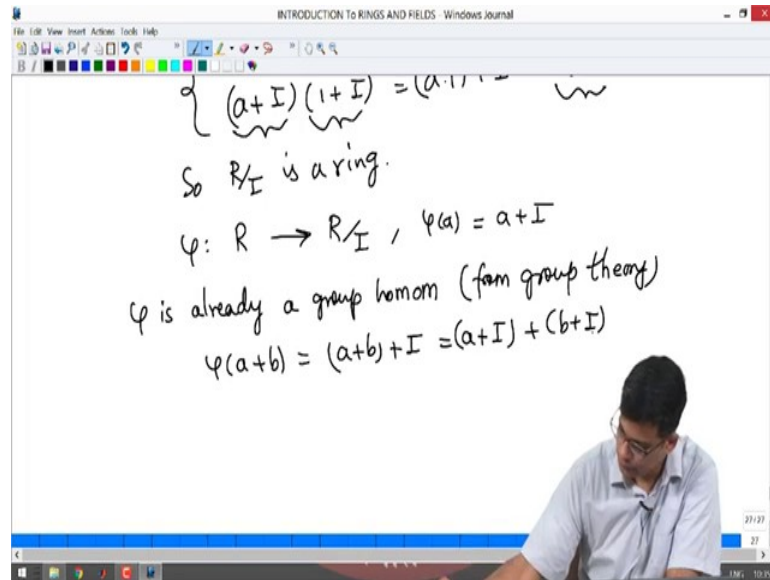 INTRODUCTION To RINGS AND FIELDS - Windows Journal
File Edit View Insert Actions Tools Help
B I
(a+I) (1+I) = (a·1)+I
So R/I is a ring.
φ: R → R/I , φ(a) = a+I
φ is already a group homom (from group theory)
φ(a+b) = (a+b)+I =(a+I) + (b+I)
27/27
27
ENG 10:35